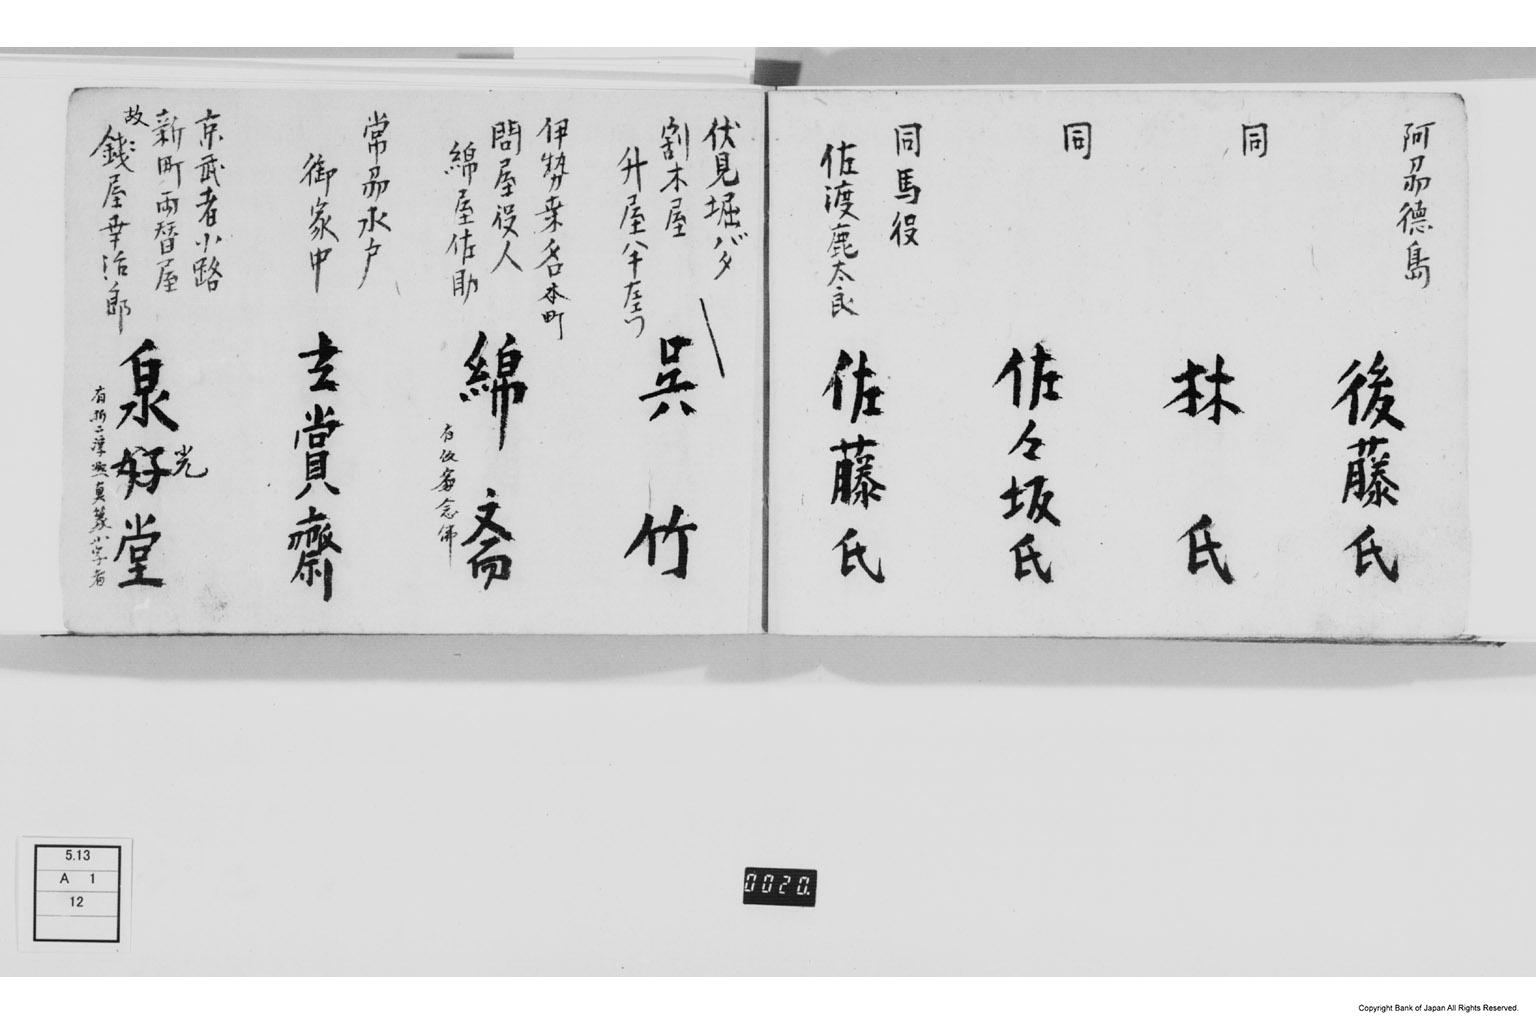 阿刕德島
後藤氏
同
林氏
同
佐々坂氏
同馬役
佐渡鹿太良
佐藤氏
伏見堀バタ
割木屋
升屋八十左ヱ門
呉竹
伊勢桒名本町
問屋役人
綿屋佐助
綿文斎
常刕水户
御家中
玄賞齋
京武者小路
新町両替屋
故錢屋幸治郎
泉好堂
光
5.13
A 1
12
0020.
Copyright Bank of Japan All Rights Reserved.